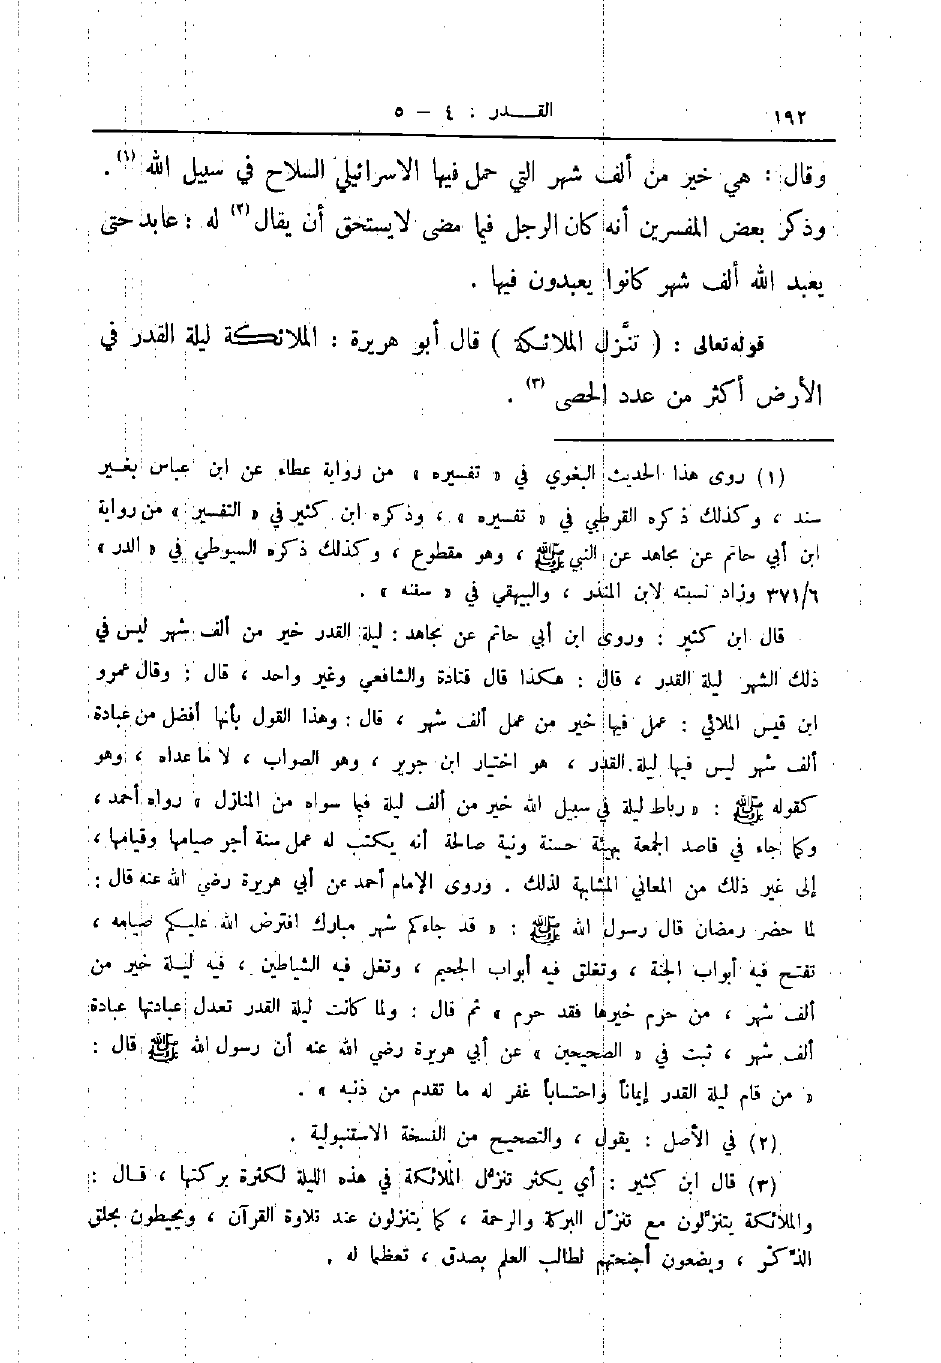 ١٩٢ القـــدر : ٤ – ٥
وقال : هي خير من ألف شهر التي حمل فيها الاسرائيلي السلاح في سبيل الله (١) .
وذكر بعض المفسرين أنه كان الرجل فيما مضى لايستحق أن يقال (٢) له : عابد حتى
يعبد الله ألف شهر كانوا يعبدون فيها .
قوله تعالى : ( تنزَّل الملائكة ) قال أبو هريرة : الملائكة ليلة القدر في
الأرض أكثر من عدد الحصى (٣) .
(١) روى هذا الحديث البغوي في « تفسيره » من رواية عطاء عن ابن عباس بغير
سند ، وكذلك ذكره القرطبي في « تفسيره » ، وذكره ابن كثير في « التفسير » من رواية
ابن أبي حاتم عن مجاهد عن النبي ﷺ ، وهو مقطوع ، وكذلك ذكره السيوطي في « الدر »
٣٧١/٦ وزاد نسبته لابن المنذر ، والبيهقي في « سننه » .
قال ابن كثير : وروى ابن أبي حاتم عن مجاهد : ليلة القدر خير من ألف شهر ليس في
ذلك الشهر ليلة القدر ، قال : هكذا قال قتادة والشافعي وغير واحد ، قال : وقال عمرو
ابن قيس الملائي : عمل فيها خير من عمل ألف شهر ، قال : وهذا القول بأنها أفضل من عبادة
ألف شهر ليس فيها ليلة القدر ، هو اختيار ابن جرير ، وهو الصواب ، لا ما عداه ، وهو
كقوله ﷺ : « رباط ليلة في سبيل الله خير من ألف ليلة فيما سواه من المنازل » رواه أحمد ،
وكما جاء في قاصد الجمعة بهيئة حسنة ونية صالحة أنه يكتب له عمل سنة أجر صيامها وقيامها ،
إلى غير ذلك من المعاني المشابهة لذلك . وروى الإمام أحمد عن أبي هريرة رضي الله عنه قال :
لما حضر رمضان قال رسول الله ﷺ : « قد جاءكم شهر مبارك افترض الله عليكم صيامه ،
تفتح فيه أبواب الجنة ، وتغلق فيه أبواب الجحيم ، وتغل فيه الشياطين ، فيه ليلة خير من
ألف شهر ، من حرم خيرها فقد حرم » ثم قال : ولما كانت ليلة القدر تعدل عبادتها عبادة
ألف شهر ، ثبت في « الصحيحين » عن أبي هريرة رضي الله عنه أن رسول الله ﷺ قال :
« من قام ليلة القدر إيماناً واحتساباً غفر له ما تقدم من ذنبه » .
(٢) في الأصل : يقول ، والتصحيح من النسخة الاستنبولية .
(٣) قال ابن كثير : أي يكثر تنزّل الملائكة في هذه الليلة لكثرة بركتها ، قـال :
والملائكة يتنزّلون مع تنزّل البركة والرحمة ، كما يتنزلون عند تلاوة القرآن ، ويحيطون بحلق
الذّكر ، ويضعون أجنحتهم لطالب العلم بصدق ، تعظيما له .